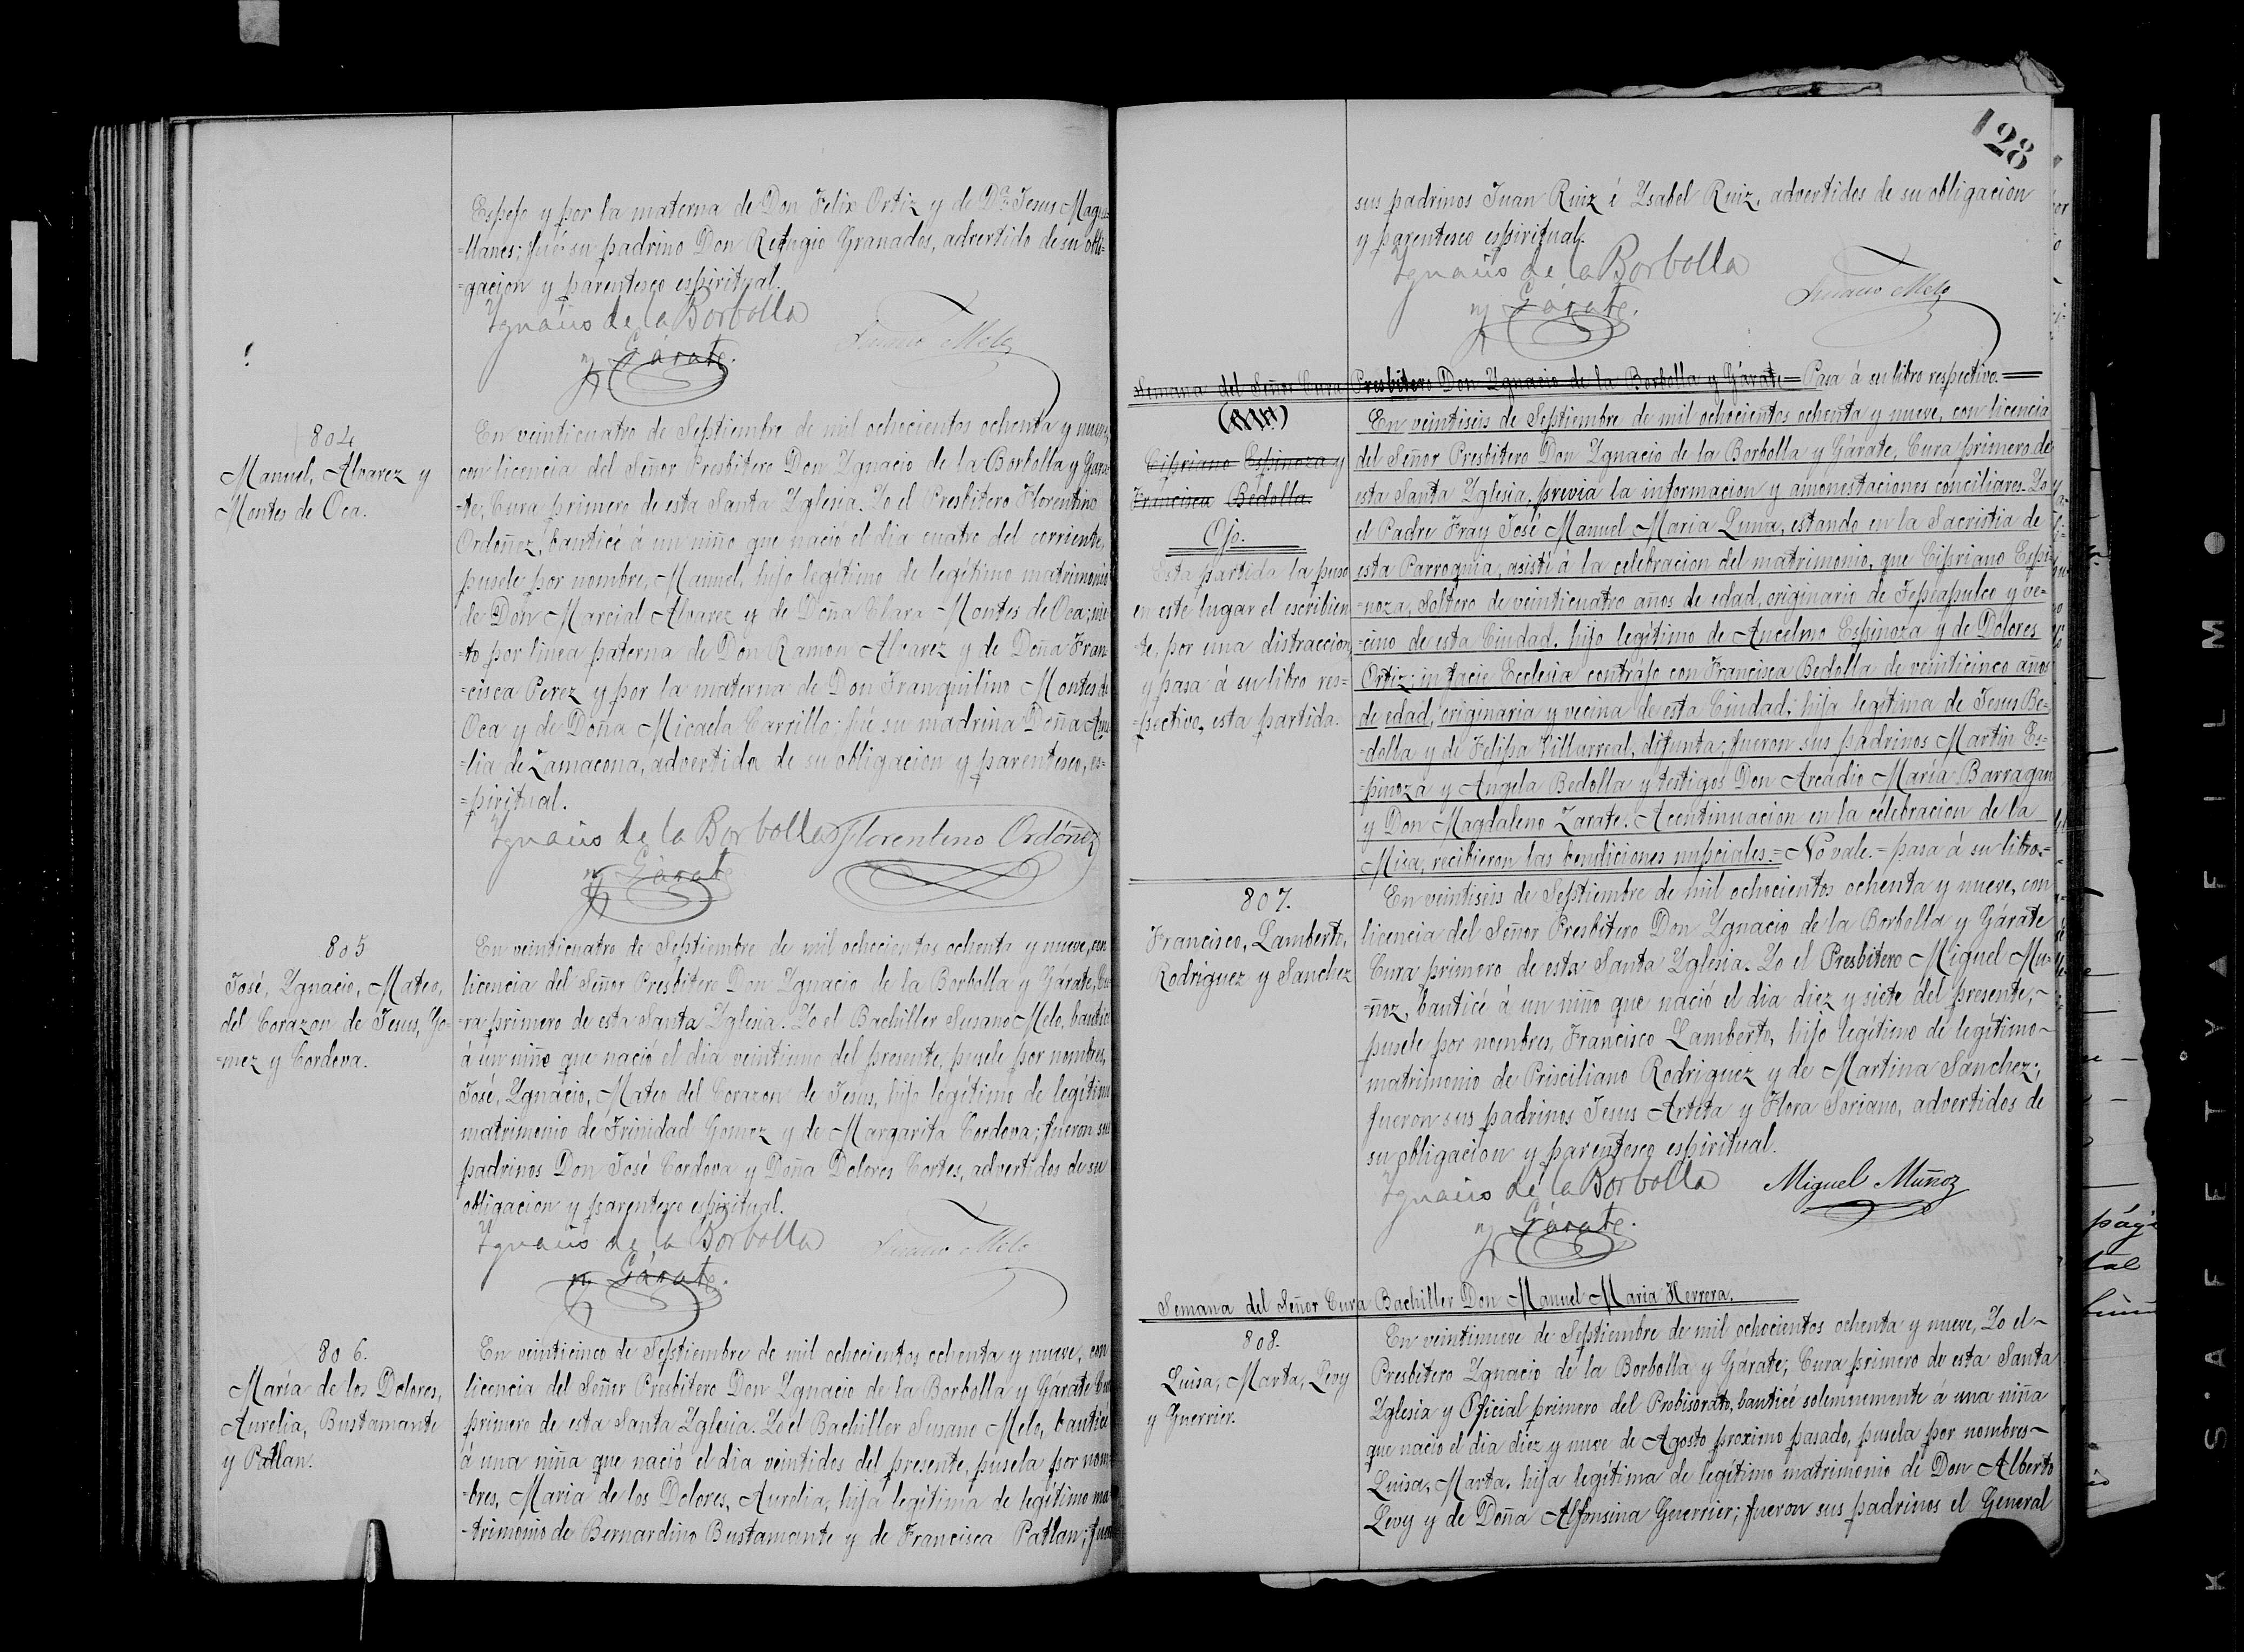 Espejo y por la materna de Don Felix Ortiz y de Dª Jesus Maga-
=llanes; fué su padrino Don Refugio Granados, advertido de su obli-
=gacion y parentesco espiritual.
Ygnacio de la Borbolla
y Gárate.
Susano Melo
804
Manuel, Alvarez y
Montes de Oca.
En veinticuatro de Septiembre de mil ochocientos ochenta y nueve,
con licencia del Señor Presbitero Don Ygnacio de la Borbolla y Gára-
=te, Cura primero de esta Santa Yglesia. Yo el Presbitero Florentino
Ordoñez, bauticé á un niño que nació el dia cuatro del corriente,
pusele por nombre, Manuel, hijo legítimo de legítimo matrimonio
de Don Marcial Alvarez y de Doña Clara Montes de Oca; nie-
=to por linea paterna de Don Ramon Alvarez y de Doña Fran-
=cisca Perez y por la materna de Don Tranquilino Montes de
Oca y de Doña Micaela Carrillo; fué su madrina Doña Ame-
=lia de Zamacona, advertida de su obligacion y parentesco, es-
=piritual.
Ygnacio de la Borbolla
y Gárate
Florentino Ordóñez
805
José, Ygnacio, Mateo,
del Corazon de Jesus, Go-
=mez y Cordova.
En veinticuatro de Septiembre de mil ochocientos ochenta y nueve, con
licencia del Señor Presbitero Don Ygnacio de la Borbolla y Gárate, Cu-
=ra primero de esta Santa Yglesia. Yo el Bachiller Susano Melo, bauticé
á un niño que nació el dia veintiuno del presente, pusele por nombres,
José, Ygnacio, Mateo del Corazon de Jesus, hijo legítimo de legítimo
matrimonio de Trinidad Gomez y de Margarita Cordova; fueron sus
padrinos Don José Cordova y Doña Dolores Cortes, advertidos de su
obligacion y parentesco espiritual.
Ygnacio de la Borbolla
y Gárate.
Susano Melo
806.
María de los Dolores,
Aurelia, Bustamante
y Patlan.
En veinticinco de Septiembre de mil ochocientos ochenta y nueve, con
licencia del Señor Presbitero Don Ygnacio de la Borbolla y Gárate Cura
primero de esta Santa Yglesia. Yo el Bachiller Susano Melo, bauticé
á una niña que nació el dia veintidos del presente, pusela por nom-
=bres, Maria de los Dolores, Aurelia, hija legítima de legítimo ma-
=trimonio de Bernardino Bustamante y de Francisca Patlan; fueron
128
sus padrinos Juan Ruiz é Ysabel Ruiz, advertidos de su obligacion
y parentesco espiritual.
Ygnacio de la Borbolla
y Gárate.
Susano Melo
Semana del Señor Cura Presbitero Don Ygnacio de la Borbolla y Gárate= Pasa á su libro respectivo.=
Cipriano Espinoza y
Francisca Bedolla.
Ojo.
Esta partida la puso
en este lugar el escribien-
te, por una distraccion,
y pasa á su libro res-
=pectivo, esta partida.
En veintiseis de Septiembre de mil ochocientos ochenta y nueve, con licencia
del Señor Presbitero Don Ygnacio de la Borbolla y Gárate, Cura primero de
esta Santa Yglesia, previa la informacion y amonestaciones conciliares. Yo
el Padre Fray José Manuel Maria Luna, estando en la Sacristia de
esta Parroquia, asistí á la celebracion del matrimonio, que Cipriano Espi-
=noza, Soltero de veinticuatro años de edad, originario de Tepeapulco y ve-
=cino de esta Ciudad, hijo legítimo de Ancelmo Espinoza y de Dolores
Ortiz; in facie Ecclesiæ contrajo con Francisca Bedolla de veinticinco años
de edad, originaria y vecina de esta Ciudad; hija legítima de Jesus Be-
=dolla y de Felipa Villarreal, difunta; fueron sus padrinos Martin Es-
=pinoza y Angela Bedolla y testigos Don Arcadio María Barragan
y Don Magdaleno Zarate. Acontinuacion en la célebracion de la
Misa, recibieron las bendiciones nupciales.= No vale.= pasa á su libro.=
807.
Francisco, Lamberto,
Rodriguez y Sanchez
En veintiseis de Septiembre de mil ochocientos ochenta y nueve, con
licencia del Señor Presbitero Don Ygnacio de la Borbolla y Gárate
Cura primero de esta Santa Yglesia. Yo el Presbitero Miguel Mu-
=ñoz, bauticé á un niño que nació el dia diez y siete del presente,-
pusele por nombres, Francisco Lamberto, hijo legítimo de legítimo-
matrimonio de Prisciliano Rodriguez y de Martina Sanchez;
fueron sus padrinos Jesus Arteta y Flora Soriano, advertidos de
su obligacion y parentesco espiritual.
Ygnacio de la Borbolla
y Gárate.
Miguel Muñoz
Semana del Señor Cura Bachiller Don Manuel Maria Herrera.
808.
Luisa, Marta, Levy
y Guerrier.
En veintinueve de Septiembre de mil ochocientos ochenta y nueve, Yo el-
Presbitero Ygnacio de la Borbolla y Gárate; Cura primero de esta Santa
Yglesia y Oficial primero del Probisorato, bauticé solemnemente á una niña
que nació el dia diez y nueve de Agosto proximo pasado, pusela por nombres-
Luisa, Marta, hija legítima de legítimo matrimonio de Don Alberto
Levy y de Doña Alfonsina Guerrier; fueron sus padrinos el General
pági
tal
K S·A F E T Y A F I L M